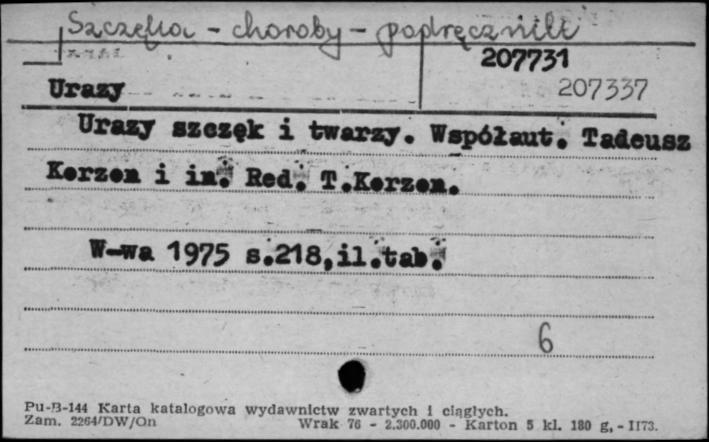 Szczęka - choroby - podręczniki
207731
Urazy 207337
Urazy szczęk i twarzy. Współaut. Tadeusz
Korzon i in. Red. T.Korzon.
W-wa 1975 s.218,il.tab.
6
Pu-B-144 Karta katalogowa wydawnictw zwartych i ciągłych.
Zam. 2264/DW/On Wrak 76 - 2.300.000 - Karton 5 kl. 180 g, - II73.